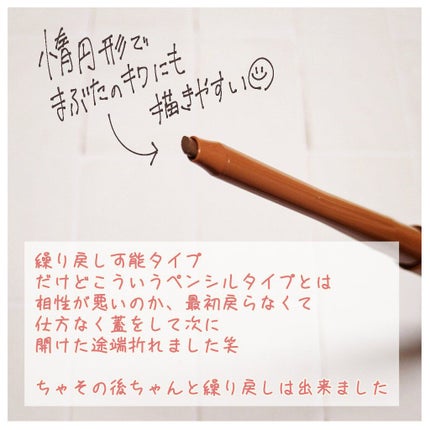 惰円形で
まぶたのキワにも
描きやすい
繰り戻し可能タイプ
だけどこういうペンシルタイプとは
相性が悪いのか、最初戻らなくて
仕方なく蓋をして次に
開けた途端折れました笑
ちゃその後ちゃんと繰り戻しは出来ました